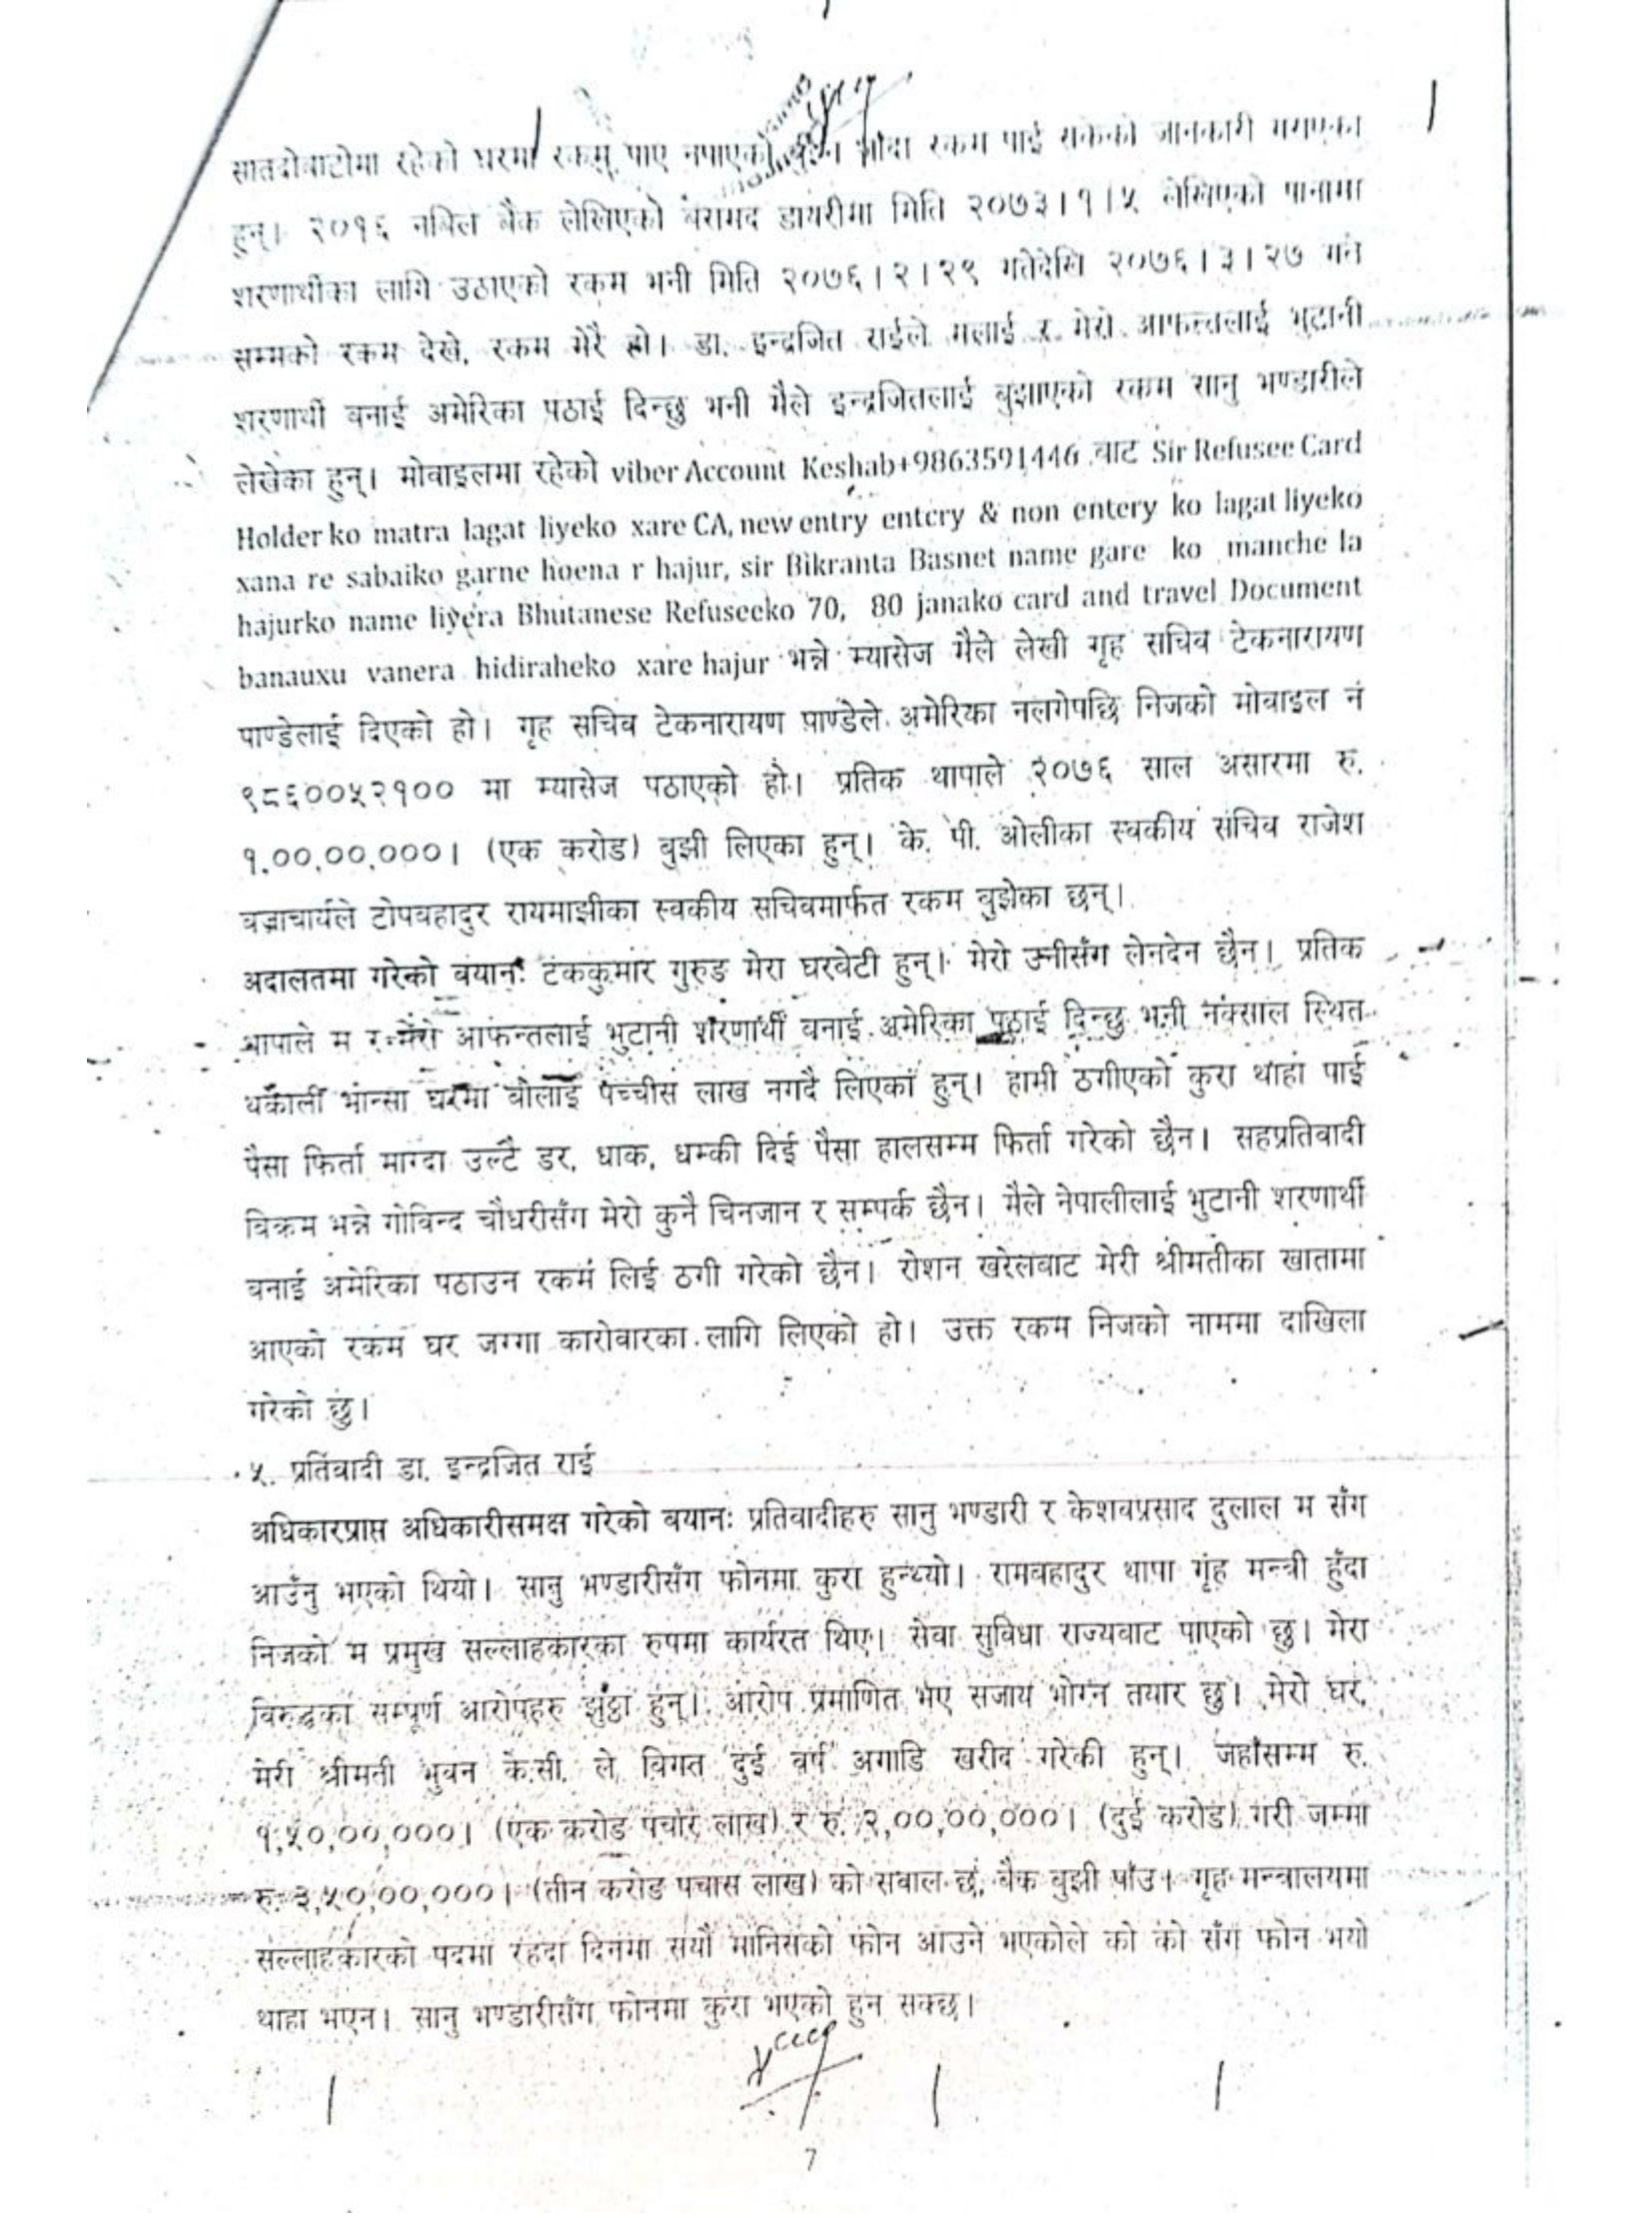 सातदोबाटोमा रहेको घरमा रकम पाए नपाएको रकम पाई सकेको जानकारी गराएका
हुन्। २०१६ नबिल बैंक लेखिएको बरामद डायरीमा मिति २०७३।१।५ लेखिएको पानामा
शरणार्थीका लागि उठाएको रकम भनी मिति २०७६।२।२९ गतेदेखि २०७६।३।२७ गते
सम्मको रकम देखे, रकम मेरै हो। डा. इन्द्रजित राईले मलाई र मेरो आफन्तलाई भुटानी
शरणार्थी बनाई अमेरिका पठाई दिन्छु भनी मैले इन्द्रजितलाई बुझाएको रकम सानु भण्डारीले
लेखेका हुन्। मोवाइलमा रहेको viber Account Keshab+9863591446 बाट Sir Refusee Card
Holder ko matra lagat liyeko xare CA, new entry entery & non entery ko lagat liyeko
xana re sabaiko garne hoena r hajur, sir Bikranta Basnet name gare ko manche la
hajurko name liyera Bhutanese Refuseeko 70, 80 janako card and travel Document
banauxu vanera hidiraheko xare hajur भन्ने म्यासेज मैले लेखी गृह सचिव टेकनारायण
पाण्डेलाई दिएको हो। गृह सचिव टेकनारायण पाण्डेले अमेरिका नलगेपछि निजको मोवाइल नं
९८६००५२१०० मा म्यासेज पठाएको हो। प्रतिक थापाले २०७६ साल असारमा रु.
१,००,००,०००। (एक करोड) बुझी लिएका हुन्। के. पी. ओलीका स्वकीय सचिव राजेश
वज्राचार्यले टोपवहादुर रायमाझीका स्वकीय सचिवमार्फत रकम बुझेका छन्।
अदालतमा गरेको बयानः टंककुमार गुरुङ मेरा घरबेटी हुन्। मेरो उनीसँग लेनदेन छैन। प्रतिक
थापाले म र मेरो आफन्तलाई भुटानी शरणार्थी बनाई अमेरिका पठाई दिन्छु भनी नक्साल स्थित
थकाली भान्सा घरमा बोलाई पच्चीस लाख नगदै लिएका हुन्। हामी ठगीएको कुरा थाहा पाई
पैसा फिर्ता माग्दा उल्टै डर, धाक, धम्की दिई पैसा हालसम्म फिर्ता गरेको छैन। सहप्रतिवादी
विक्रम भन्ने गोविन्द चौधरीसँग मेरो कुनै चिनजान र सम्पर्क छैन। मैले नेपालीलाई भुटानी शरणार्थी
बनाई अमेरिका पठाउन रकम लिई ठगी गरेको छैन। रोशन खरेलबाट मेरी श्रीमतीका खातामा
आएको रकम घर जग्गा कारोवारका लागि लिएको हो। उक्त रकम निजको नाममा दाखिला
गरेको छु।
५. प्रतिवादी डा. इन्द्रजित राई
अधिकारप्राप्त अधिकारीसमक्ष गरेको बयानः प्रतिवादीहरु सानु भण्डारी र केशवप्रसाद दुलाल म सँग
आउँनु भएको थियो। सानु भण्डारीसँग फोनमा कुरा हुन्थ्यो। रामवहादुर थापा गृह मन्त्री हुँदा
निजको म प्रमुख सल्लाहकारका रुपमा कार्यरत थिए। सेवा सुविधा राज्यबाट पाएको छु। मेरा
विरुद्धका सम्पूर्ण आरोपहरु झुठ्ठा हुन्। आरोप प्रमाणित भए सजाय भोग्न तयार छु। मेरो घर
मेरी श्रीमती भुवन के.सी. ले विगत दुई वर्ष अगाडि खरीद गरेकी हुन्। जहाँसम्म रु.
१,५०,००,०००। (एक करोड पचास लाख) र रु. २,००,००,०००। (दुई करोड) गरी जम्मा
रु. ३,५०,००,०००। (तीन करोड पचास लाख) को सवाल छ, बैंक बुझी पाँउ। गृह मन्त्रालयमा
सल्लाहकारको पदमा रहदा दिनमा सयौं मानिसको फोन आउने भएकोले को को सँग फोन भयो
थाहा भएन। सानु भण्डारीसँग फोनमा कुरा भएको हुन सक्छ।
7